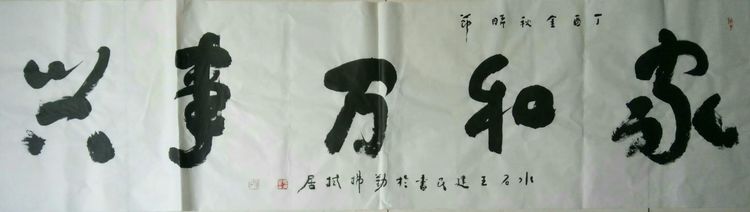 丁酉金秋时节
家和万事兴
水石王建民书於勤拂拭居